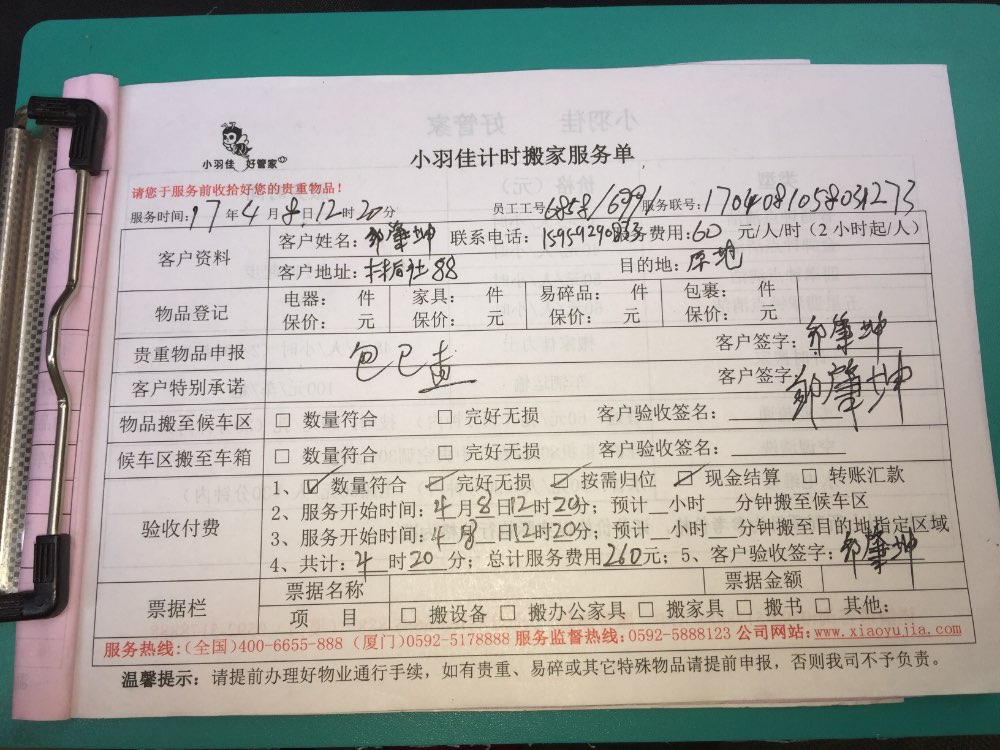 小羽佳 好管家
小羽佳计时搬家服务单
请您于服务前收拾好您的贵重物品！
服务时间：17年4月8日12时20分 员工工号6858/6991 服务联号：1704081058031273
客户资料 客户姓名：邹肇坤 联系电话： 服务费用：60 元/人/时（2小时起/人）
客户地址：社88 目的地：原地
物品登记 电器： 件 家具： 件 易碎品： 件 包裹： 件
保价： 元 保价： 元 保价： 元 保价： 元
贵重物品申报 包已查 客户签字：邹肇坤
客户特别承诺 客户签字：邹肇坤
物品搬至候车区 □ 数量符合 □ 完好无损 客户验收签名：
候车区搬至车箱 □ 数量符合 □ 完好无损 客户验收签名：
验收付费 1、☑ 数量符合 ☑ 完好无损 ☑ 按需归位 ☑ 现金结算 □ 转账汇款
2、服务开始时间：4月8日12时20分；预计__小时___分钟搬至候车区
3、服务开始时间：4月8日12时20分；预计__小时___分钟搬至目的地指定区域
4、共计：4时20分；总计服务费用260元；5、客户验收签字：邹肇坤
票据栏 票据名称 票据金额
项 目 □ 搬设备 □ 搬办公家具 □ 搬家具 □ 搬书 □ 其他：
服务热线：(全国)400-6655-888 (厦门)0592-5178888 服务监督热线：0592-5888123 公司网站：www.xiaoyujia.com
温馨提示：请提前办理好物业通行手续，如有贵重、易碎或其它特殊物品请提前申报，否则我司不予负责。